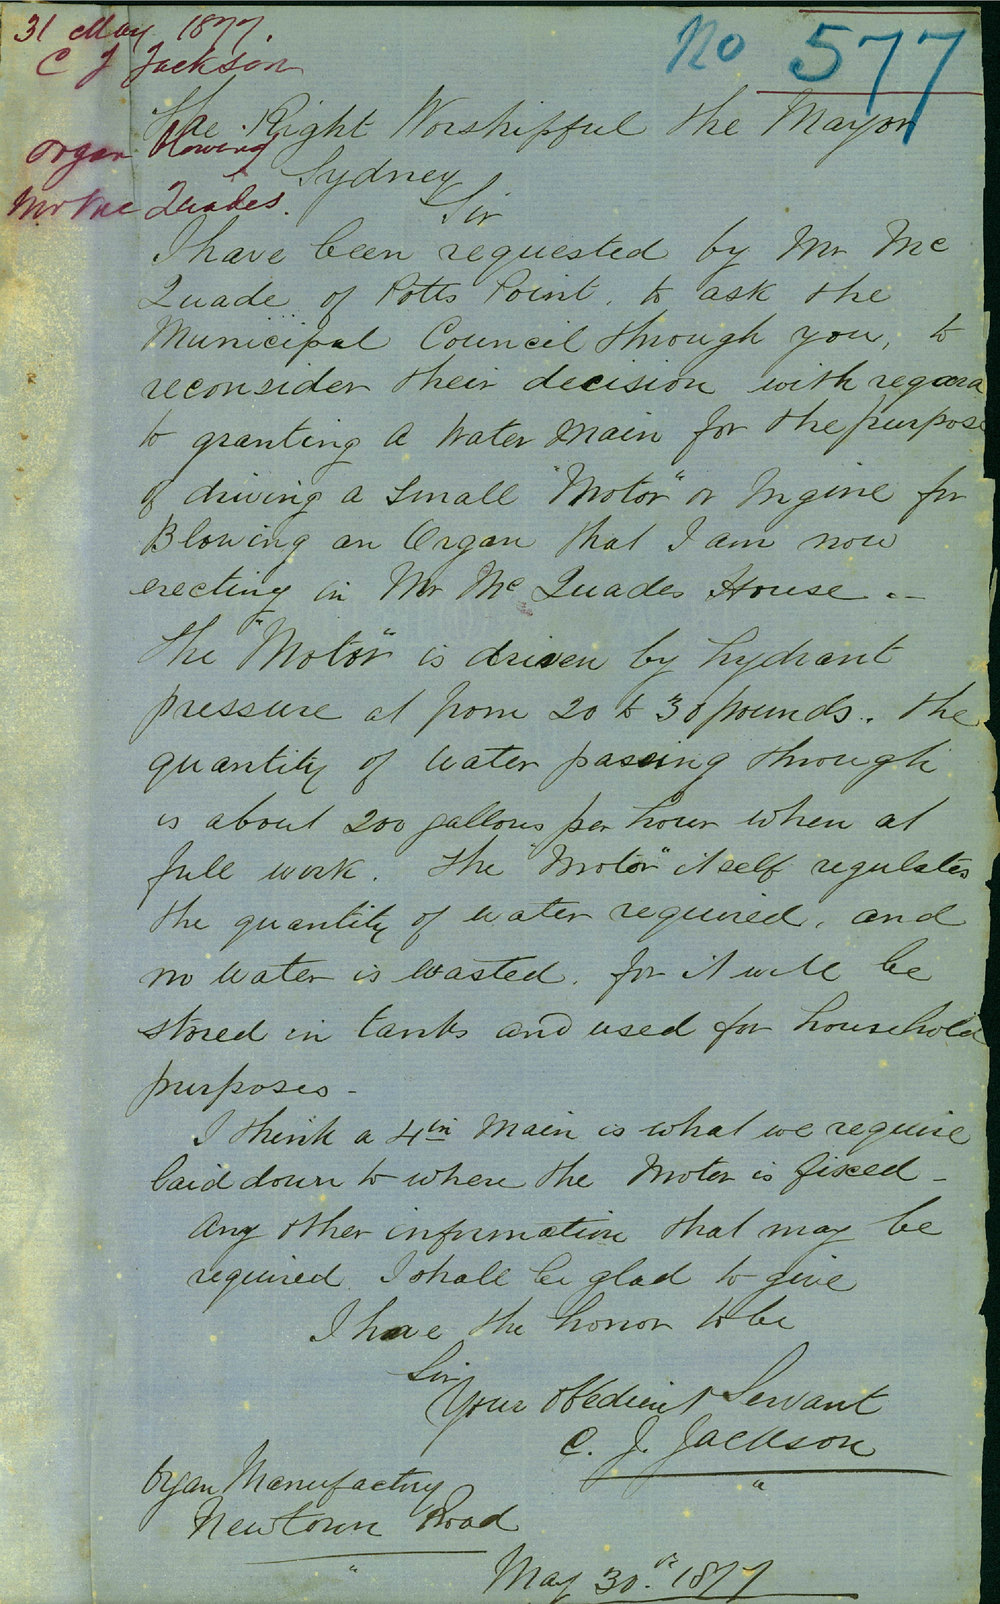 31 May 1877.
C J Jackson
No 577
The Right Worshipful the Mayor
Organ Blowing
Sydney
Mr Mc Quades.
Sir
I have been requested by Mr Mc
Quade of Potts Point. to ask the
Municipal Council through you, to
reconsider their decision with regard
to granting a Water Main for the purpose
of driving a small "Motor" or Ingine for
Blowing an Organ that I am now
erecting in Mr Mc Quades House. -
The "Motor" is driven by hydrant
pressure at from 20 to 30 pounds. The
quantity of water passing through
is about 200 gallons per hour when at
full work. The "Motor" itself regulates
the quantity of water required, and
no water is wasted. for it will be
stored in tanks and used for household
purposes -
I think a 4in Main is what we require
laid down to where the Motor is fixed -
Any other information that may be
required I shall be glad to give
I have the honor to be
Sir
Your Obedient Servant
C. J. Jackson
Organ Manufactory
Newtown Road
May 30th 1877